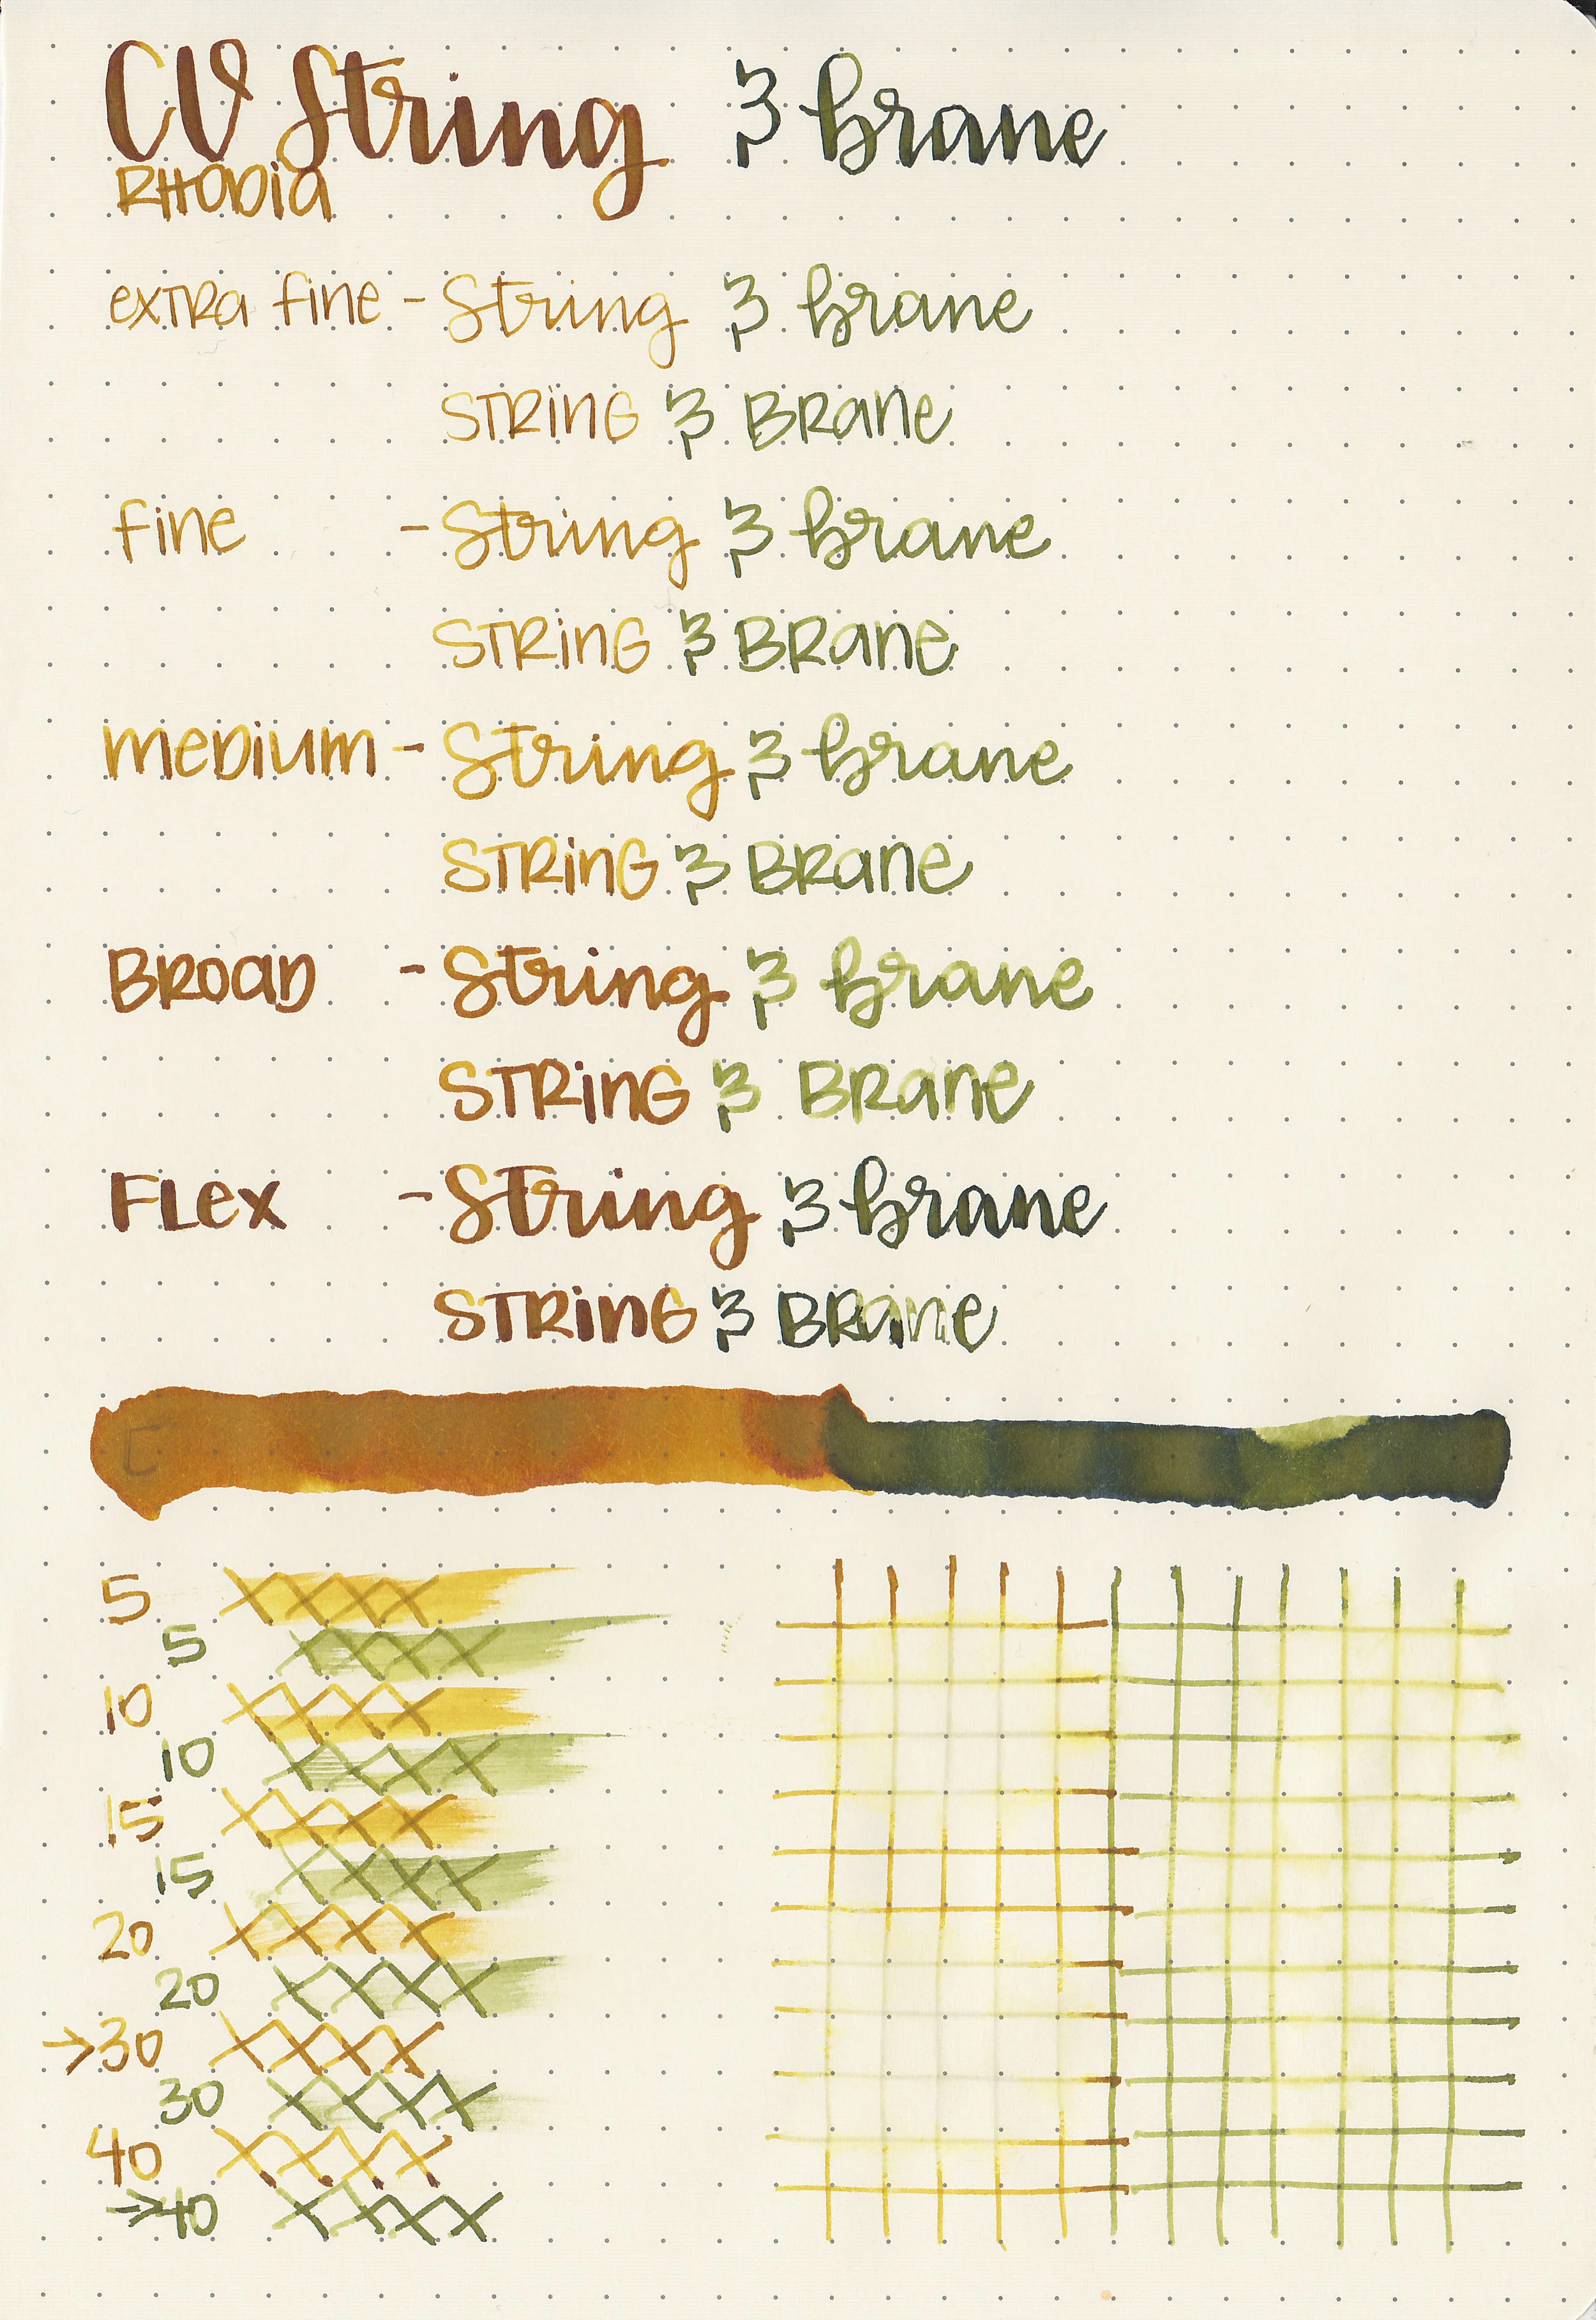 CV String & brane
RHODIA
extra fine - String & brane
STRING & BRane
fine - String & brane
STRING & BRane
medium - String & brane
STRING & BRane
BROAD - String & brane
STRING & BRane
Flex - String & brane
STRING & BRane
5
5
10
10
15
15
20
20
→30
30
40
→40